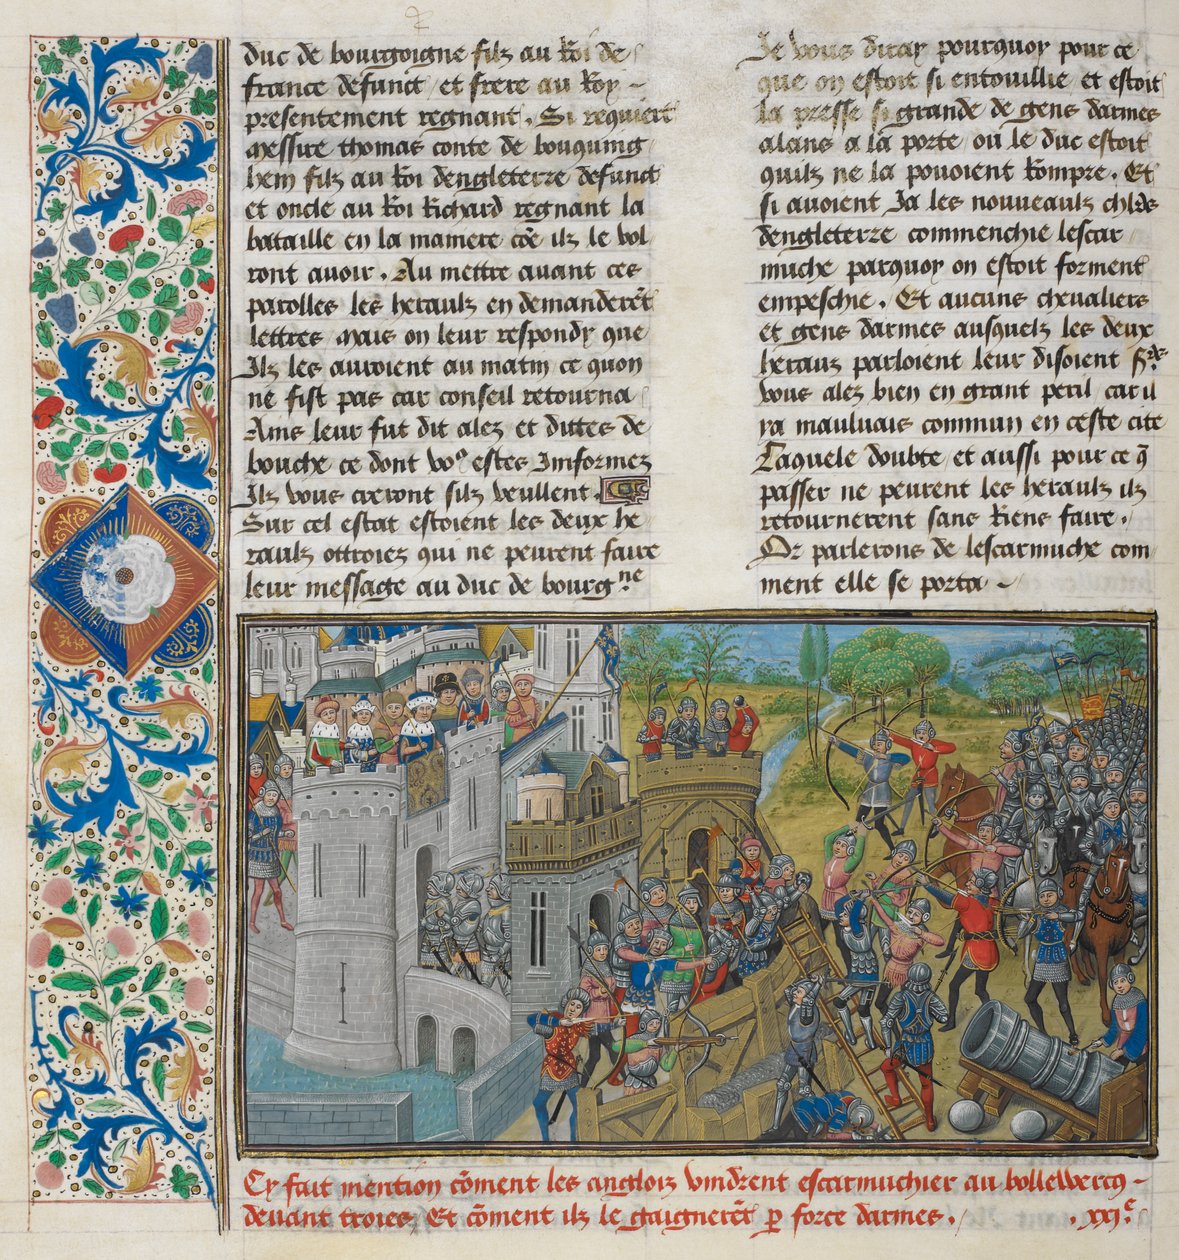 duc de bourgoigne filz au Roi de
france deffunct et frere au Roy
presentement regnant. Si requiert
messire thomas conte de bouquing
hem filz au Roi dengleterre deffunct
et oncle au Roi Richard regnant la
bataille en la maniere cõe ilz le vol
ront avoir. Au mettre avant ces
parolles les heraulz en demanderẽt
lettres mais on leur respondy que
Ilz les auroient au matin ce quon
ne fist pas car conseil retourna
Ains leur fut dit alez et dittes de
bouche ce dont voꝰ estes Informez
Ilz vous creront silz veullent.
Sur cel estat estoient les deux he
raulz ottroiez qui ne peurent faire
leur message au duc de bourgne
Je vous diray pourquoy pour ce
que on estoit si entouillie et estoit
la presse si grande de gens darmes
alans a la porte ou le duc estoit
quilz ne la pouoient Rompre. Et
si avoient Ja les nouveaulz chlrs
dengleterre commenchie lescar
muche parquoy on estoit forment
empeschie. Et aucuns chevaliers
et gens darmes ausquelz les deux
heraus parloient leur disoient srs
vous alez bien en grant peril car il
ya mauluais commun en ceste cite
Laquele doubte et aussi pour ce q̃
passer ne peurent les heraulz ilz
retournerent sans Riens faire.
Or parlerons de lescarmuche com
ment elle se porta
Cy fait mention cõment les anglois vindrent escarmuchier au bollewercq
devant troies Et cõment ilz le gaignerẽt p force darmes. .xxi.e